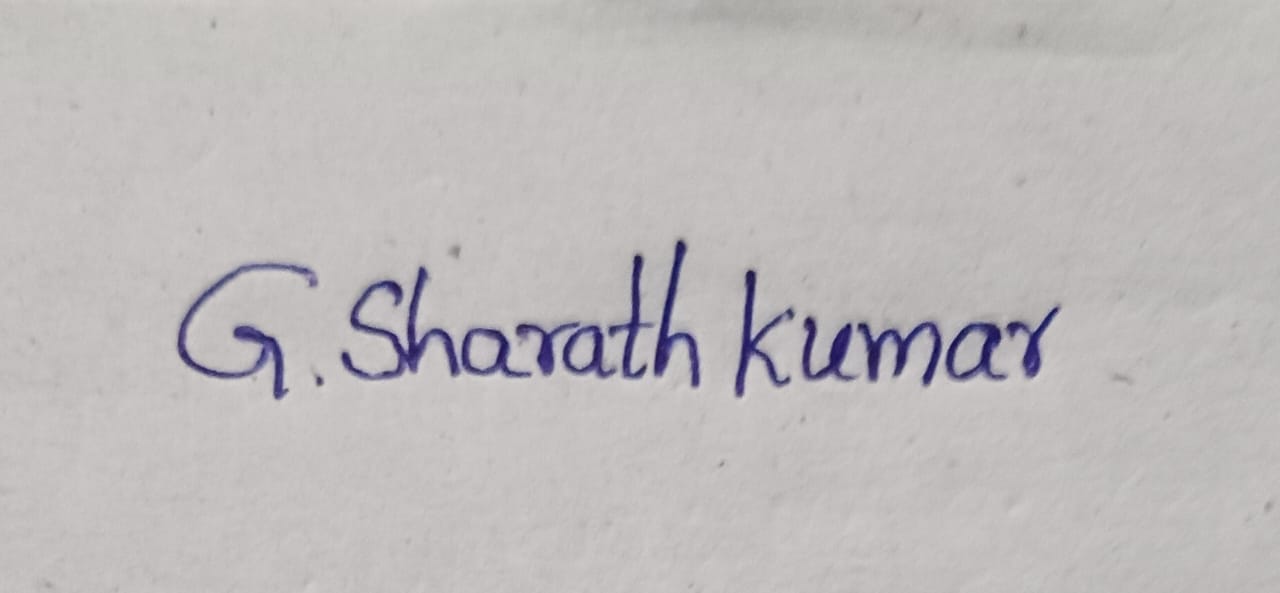 G. Sharath kumar